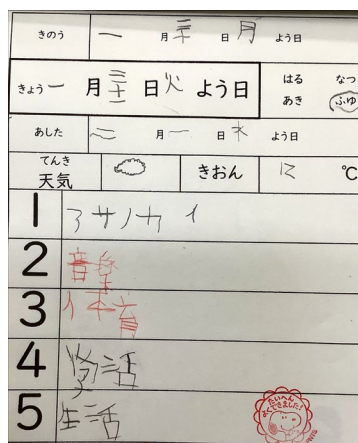 きのう 一 月 三十 日 月 よう日
きょう 一 月 三十一 日 火 よう日
はる なつ
あき ふゆ
あした 二 月 一 日 水 よう日
てんき
天気 きおん 12 ℃
1 アサノカイ
2 音楽
3 体育
4 学活
5 生活
たいへん
よくできました!